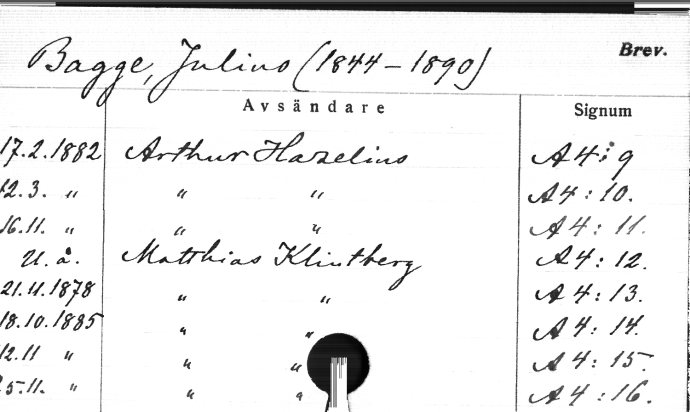 Bagge, Julius (1844-1890) Brev.
Avsändare Signum
17.2.1882 Arthur Hazelius A4:9
12.3. " " " A4:10.
16.11. " " " A4:11.
U.å. Matthias Klintberg A4:12.
21.11.1878 " " A4:13.
18.10.1885 " " A4:14.
12.11 " " " A4:15.
25.11. " " " A4:16.